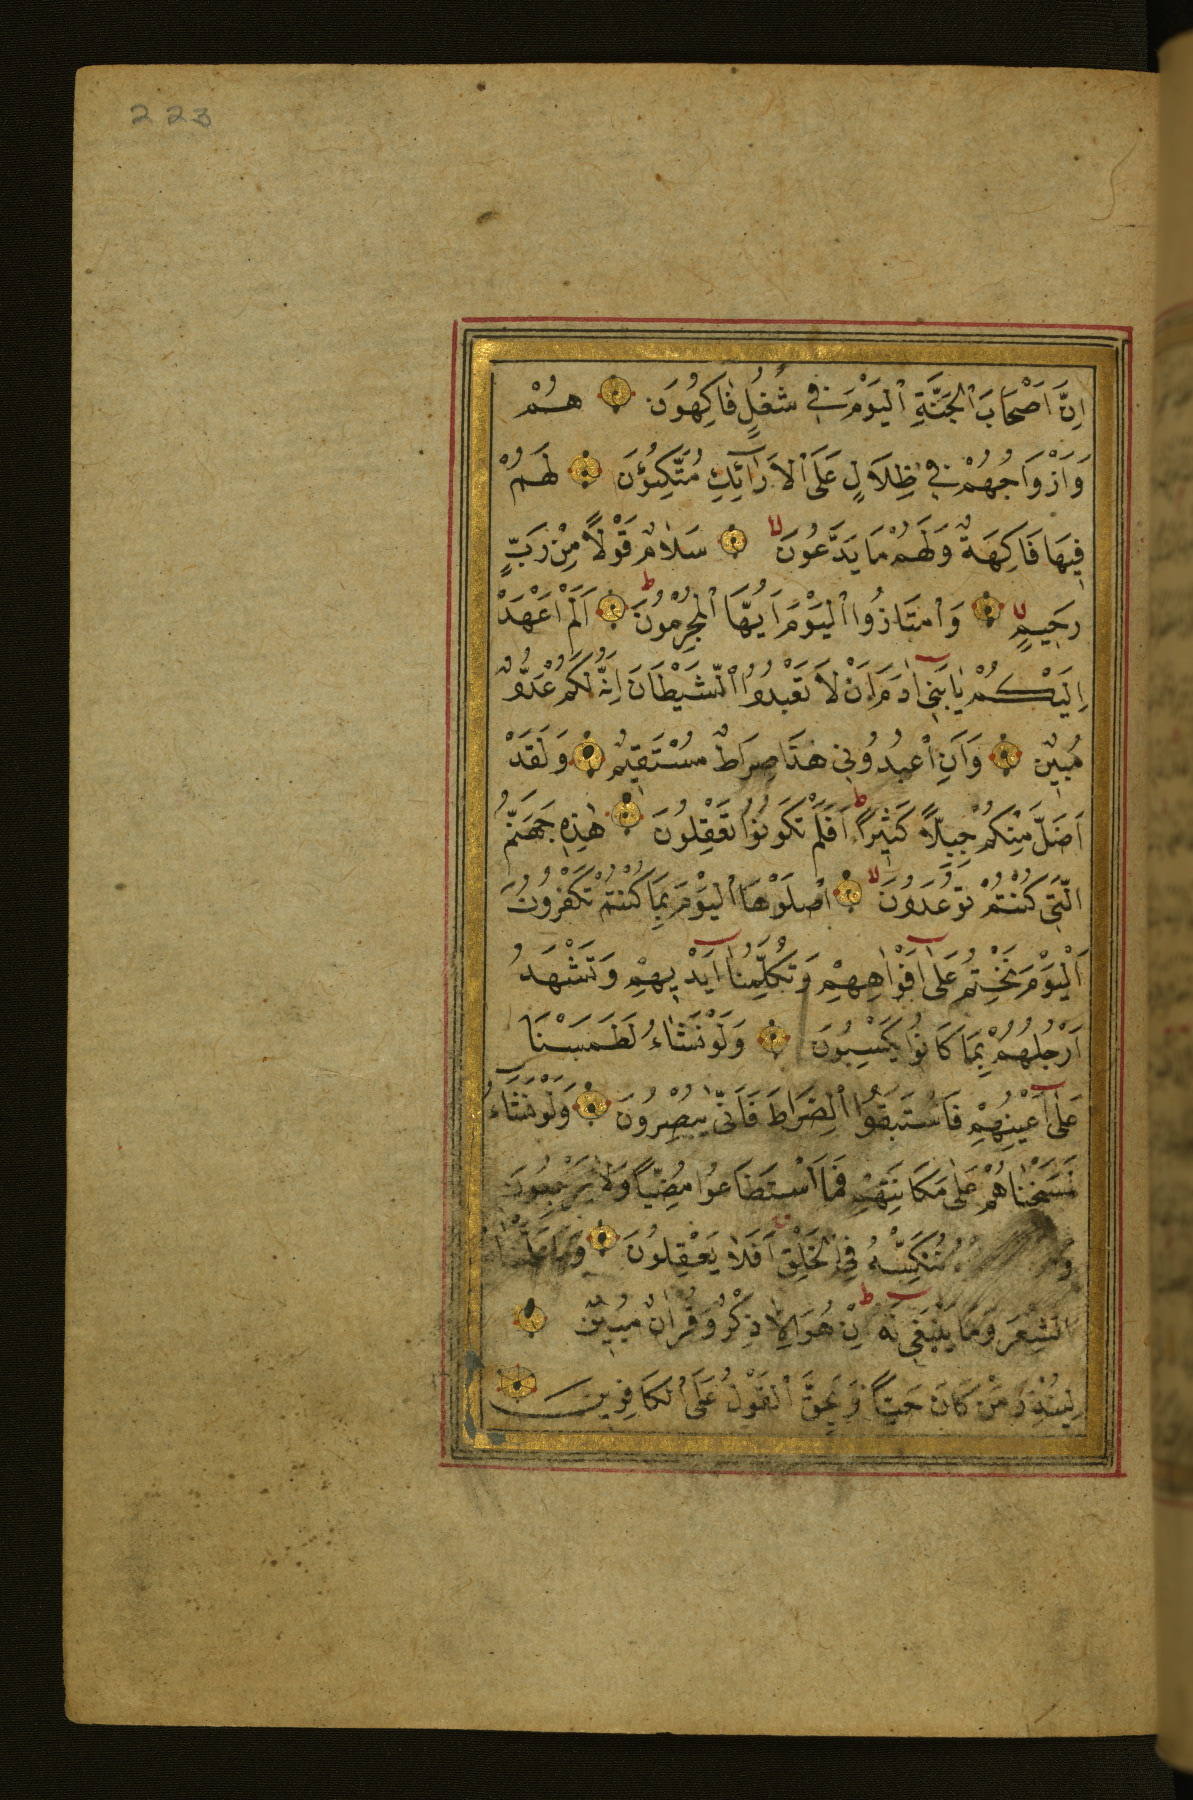 223
اِنَّ اَصْحَابَ الْجَنَّةِ الْيَوْمَ فِي شُغُلٍ فَاكِهُونَ هُمْ
وَاَزْوَاجُهُمْ فِي ظِلَالٍ عَلَى الْاَرَائِكِ مُتَّكِؤُنَ لَهُمْ
فِيهَا فَاكِهَةٌ وَلَهُمْ مَا يَدَّعُونَ سَلَامٌ قَوْلًا مِنْ رَبٍّ
رَحِيمٍ وَامْتَازُوا الْيَوْمَ اَيُّهَا الْمُجْرِمُونَ اَلَمْ اَعْهَدْ
اِلَيْكُمْ يَا بَنِي اٰدَمَ اَنْ لَا تَعْبُدُوا الشَّيْطَانَ اِنَّهُ لَكُمْ عَدُوٌّ
مُبِينٌ وَاَنِ اعْبُدُونِي هٰذَا صِرَاطٌ مُسْتَقِيمٌ وَلَقَدْ
اَضَلَّ مِنْكُمْ جِبِلًّا كَثِيرًا اَفَلَمْ تَكُونُوا تَعْقِلُونَ هٰذِهِ جَهَنَّمُ
الَّتِي كُنْتُمْ تُوعَدُونَ اِصْلَوْهَا الْيَوْمَ بِمَا كُنْتُمْ تَكْفُرُونَ
اَلْيَوْمَ نَخْتِمُ عَلٰى اَفْوَاهِهِمْ وَتُكَلِّمُنَا اَيْدِيهِمْ وَتَشْهَدُ
اَرْجُلُهُمْ بِمَا كَانُوا يَكْسِبُونَ وَلَوْ نَشَاءُ لَطَمَسْنَا
عَلٰى اَعْيُنِهِمْ فَاسْتَبَقُوا الصِّرَاطَ فَاَنّٰى يُبْصِرُونَ وَلَوْ نَشَاءُ
لَمَسَخْنَاهُمْ عَلٰى مَكَانَتِهِمْ فَمَا اسْتَطَاعُوا مُضِيًّا وَلَا يَرْجِعُونَ
نُنَكِّسْهُ فِي الْخَلْقِ اَفَلَا يَعْقِلُونَ
الشِّعْرَ وَمَا يَنْبَغِي لَهُ اِنْ هُوَ اِلَّا ذِكْرٌ وَقُرْاٰنٌ مُبِينٌ
لِيُنْذِرَ مَنْ كَانَ حَيًّا وَيَحِقَّ الْقَوْلُ عَلَى الْكَافِرِينَ